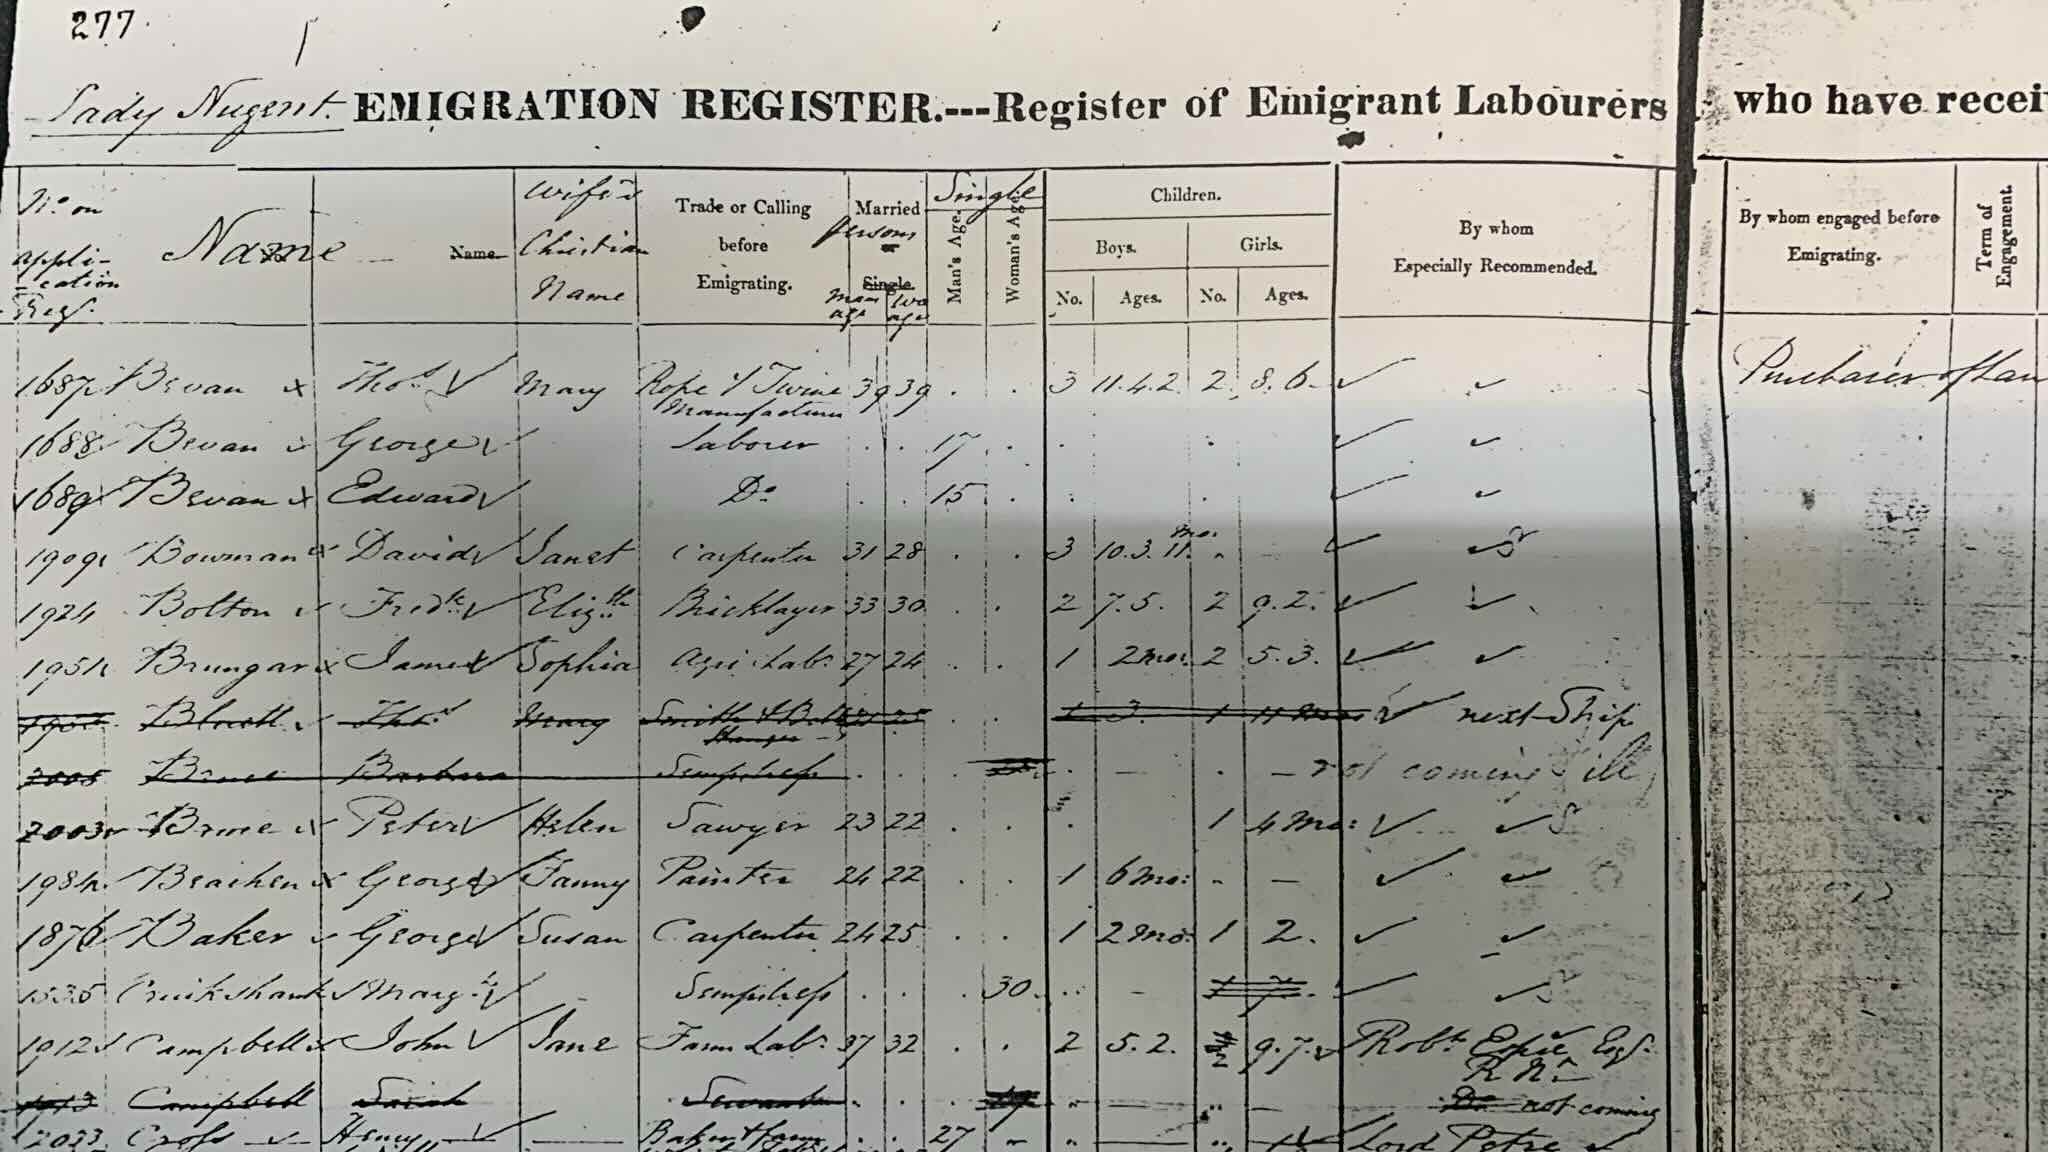 277
Lady Nugent. EMIGRATION REGISTER.---Register of Emigrant Labourers who have recei
No. on application Reg. Name Name Wife's Christian Name Trade or Calling before Emigrating. Married persons or Single. man age wo age Single Man's Age. Woman's Age. Children. Boys. No. Ages. Girls. No. Ages. By whom Especially Recommended. By whom engaged before Emigrating. Term of Engagement.
1687 Bevan x Thos ✓ Mary Rope & Twine 39 39 . . 3 11.4.2 2 8.6 ✓ ✓ Purchaser of Lan
Manufacturer
1688 Bevan George ✓ Laborer . . 17 . . . ✓ ✓
1689 Bevan x Edward ✓ Do . . 15 . . . ✓ ✓
1909 Bowman x David ✓ Janet Carpenter 31 28 . . 3 10.3.11 mo. . — ✓ ✓
1924 Bolton ✓ Fredk ✓ Elizth Bricklayer 33 30 . . 2 7.5. 2 9.2. ✓ ✓
1951 Brungar x James ✓ Sophia Agri Labr 27 24 . . 1 2 mo: 2 5.3. ✓ ✓
Thos Mary Smith & Bell . . 1 3. 1 11 mo ✓ next Ship
Hanger
2005 Bruce Barbara Sempstress . . . . — . — not coming ill
2003 Brue x Peter ✓ Helen Sawyer 23 22 . . . 1 4 Mo: ✓ ✓ S
1984 x George ✓ Fanny Painter 24 22 . . 1 6 mo: - — ✓ ✓
1876 Baker ✓ George ✓ Susan Carpenter 24 25 . . 1 2 mo. 1 2. ✓ ✓
Cruikshank ✓ Margt ✓ - Sempstress . . . 30 . . — ✓ ✓ S
1912 Campbell x John ✓ Jane Farm Labr 37 32 . . 2 5.2. 2 9.7. ✓ Robt Esqr.
R N
1913 Campbell Sarah Servant . . . 19 " — " — Do not coming
2033 Cross ✓ Henry ✓ — . . 27 " " — " — Lord Petre ✓